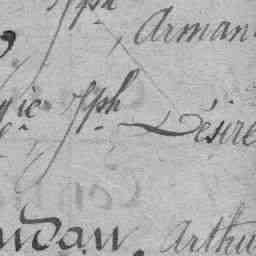 Jph Arman
ie Jph Désiré
ndaw, Arthu